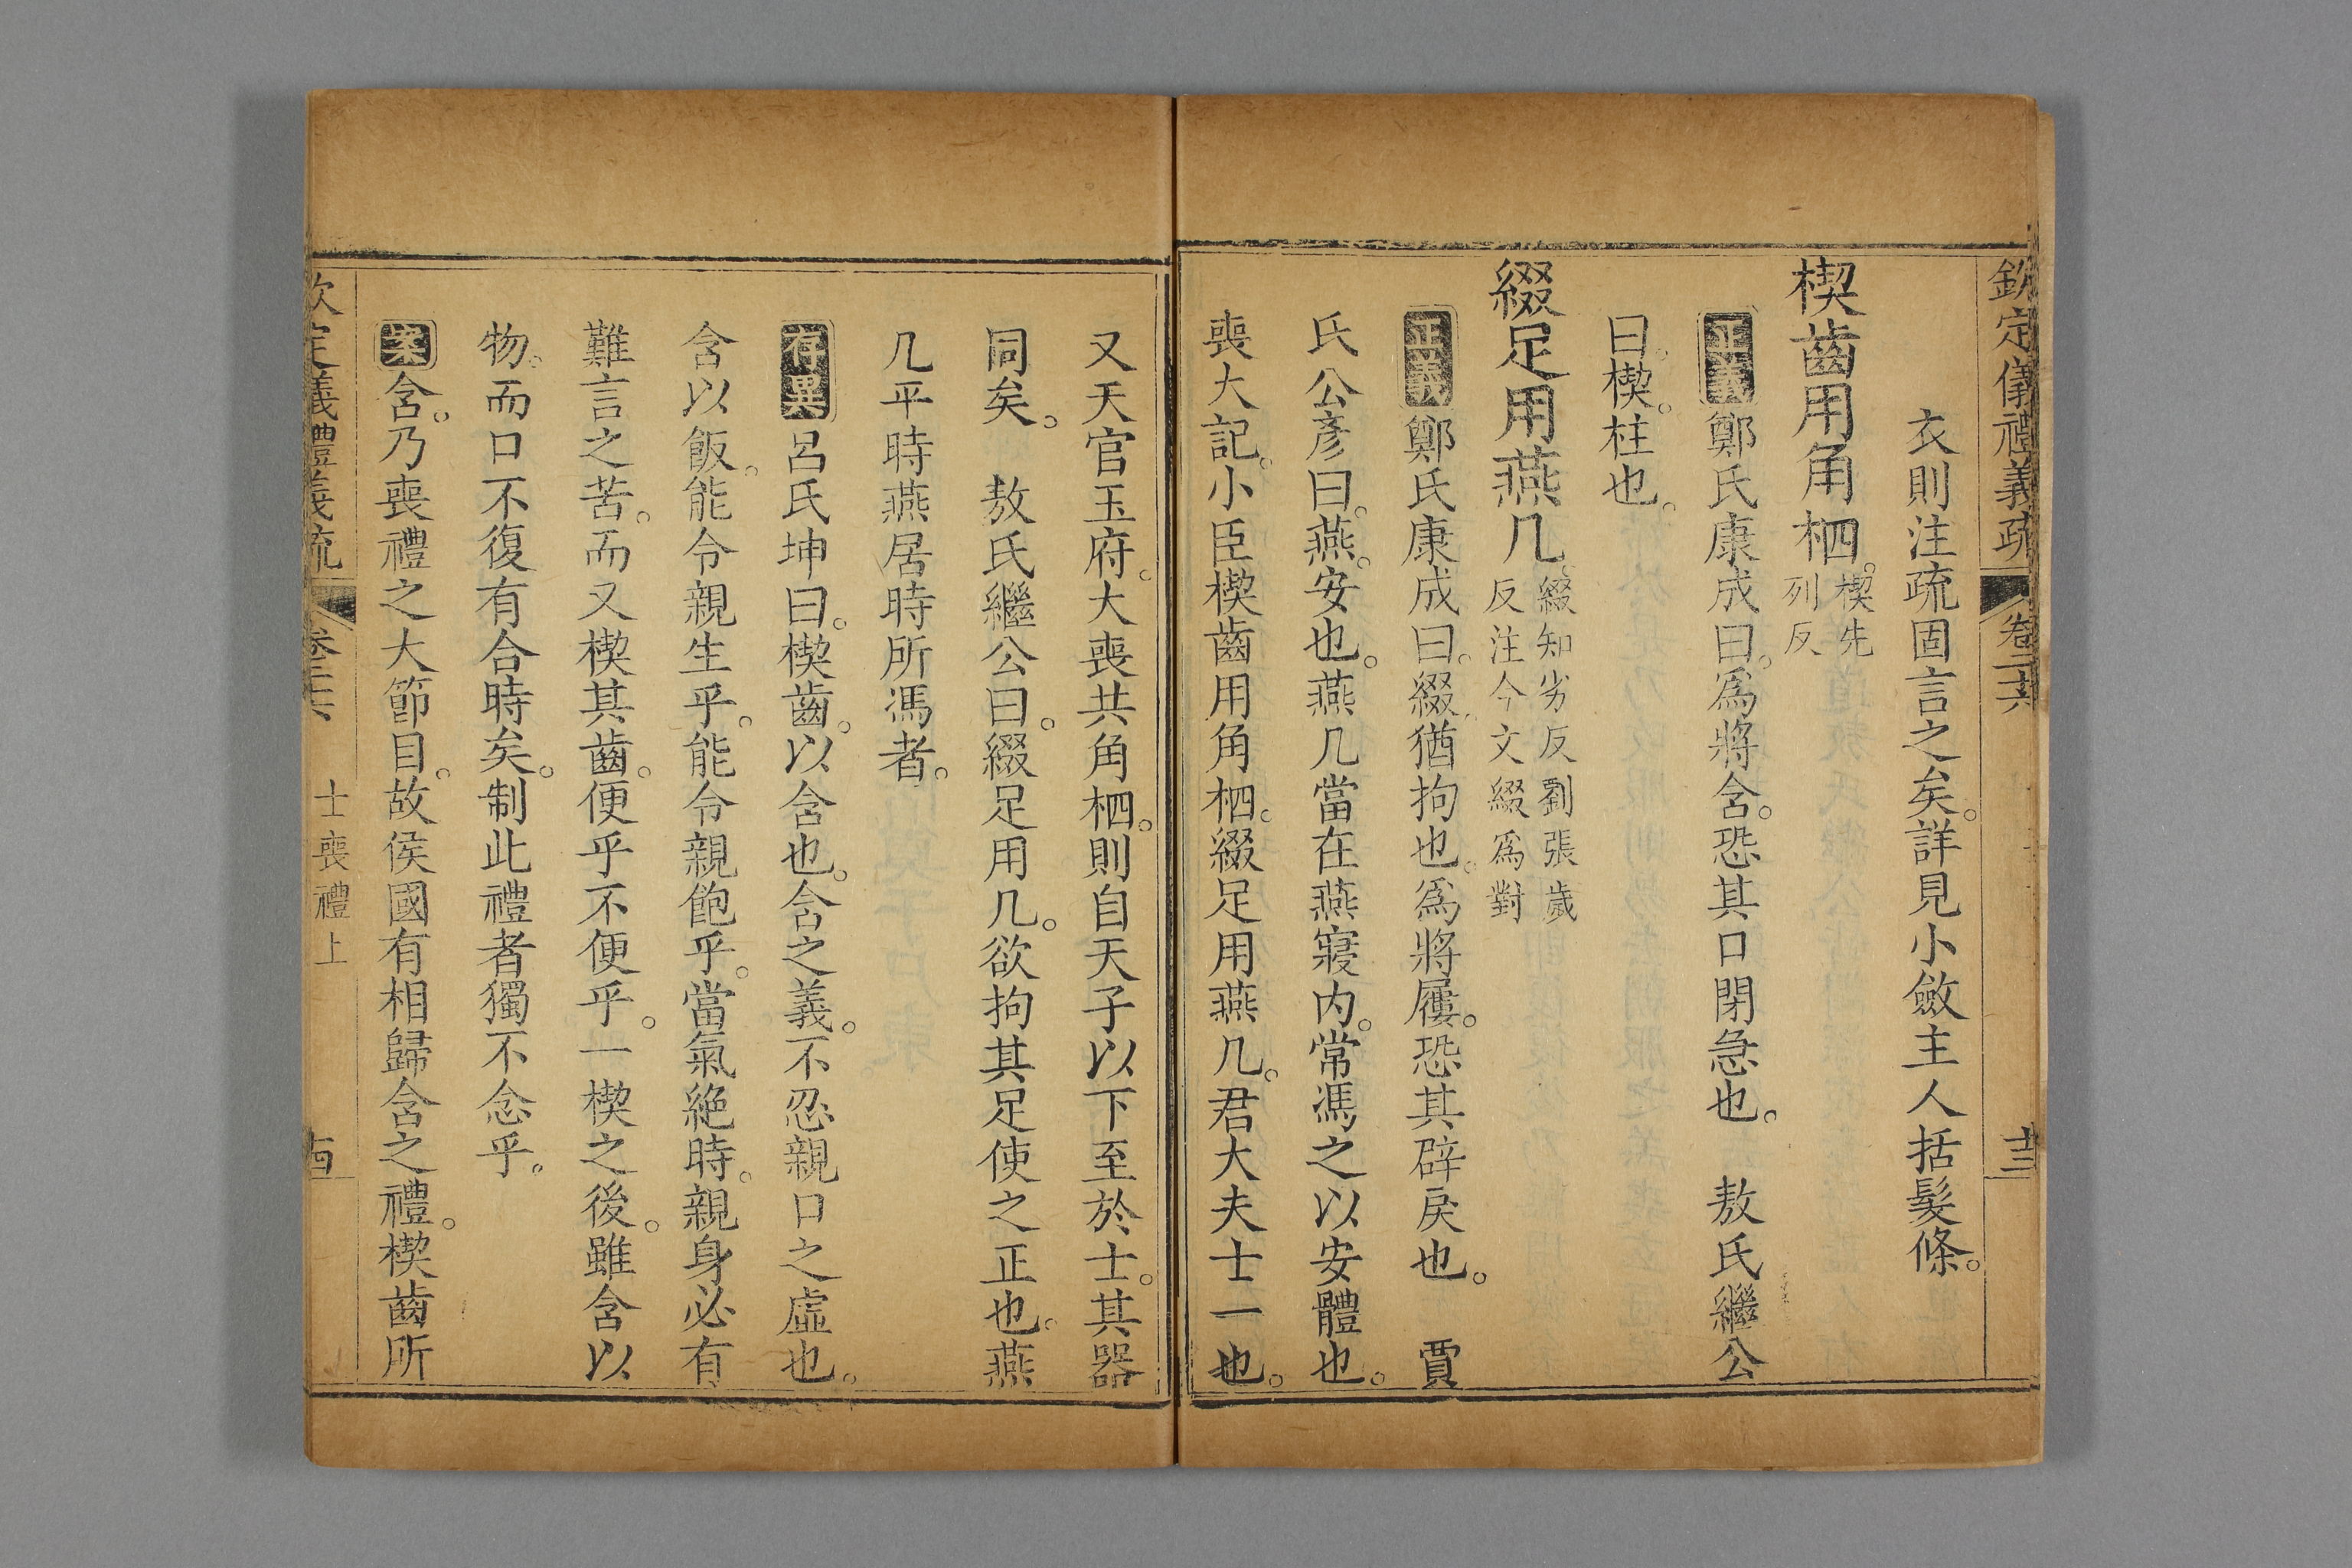 欽定儀禮義疏 卷二十六 十三
衣則注疏固言之矣。詳見小斂主人括髮條。
楔齒用角柶。楔先
列反
正義鄭氏康成曰。爲將含。恐其口閉急也。 敖氏繼公
曰。楔。柱也。
綴足用燕几。綴知劣反劉張歲
反注今文綴爲對
正義鄭氏康成曰。綴猶拘也。爲將屨。恐其辟戾也。 賈
氏公彥曰。燕。安也。燕几當在燕寢内。常馮之以安體也。
喪大記。小臣楔齒用角柶。綴足用燕几。君大夫士一也。
又天官玉府。大喪共角柶。則自天子以下至於士。其器
同矣。 敖氏繼公曰。綴足用几。欲拘其足使之正也。燕
几平時燕居時所馮者。
存異呂氏坤曰。楔齒。以含也。含之義。不忍親口之虛也。
含以飯。能令親生乎。能令親飽乎。當氣絶時。親身必有
難言之苦。而又楔其齒。便乎不便乎。一楔之後。雖含以
物。而口不復有合時矣。制此禮者獨不念乎。
案含。乃喪禮之大節目。故侯國有相歸含之禮。楔齒所
欽定儀禮義疏 卷二十六 士喪禮上 十四